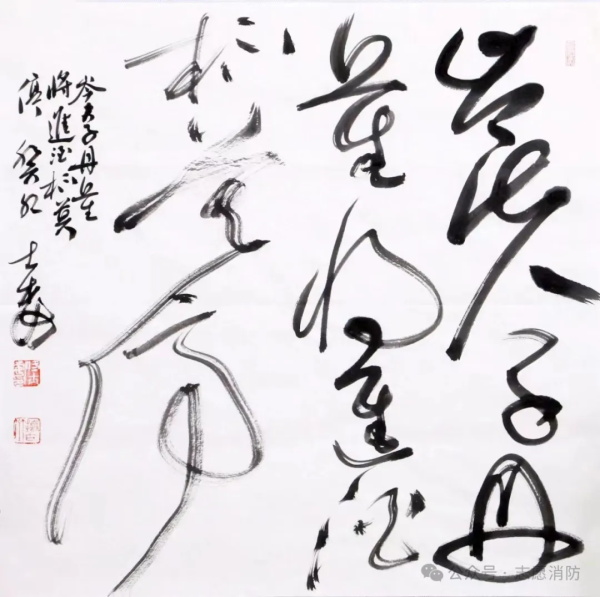 岑夫子丹
丘生將進酒
杯莫停
岑夫子丹丘生
將進酒杯莫
停 癸卯
公众号 · 志愿消防